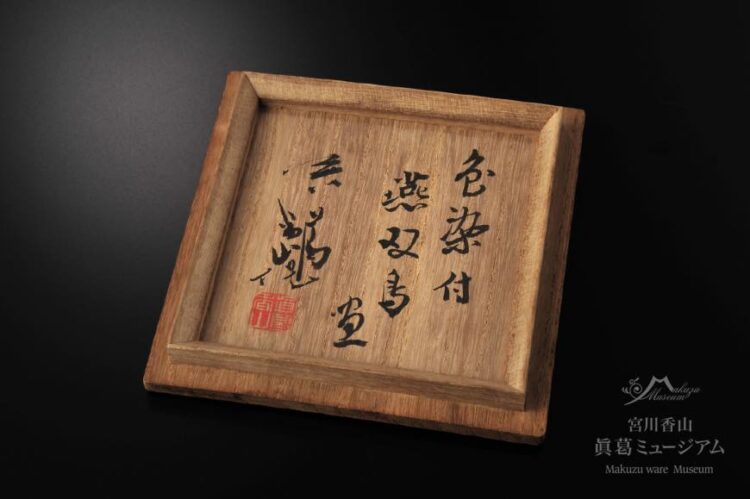 色染付
燕双鳥
画
真葛
香山
Makuzu
Museum
宮川香山
眞葛ミュージアム
Makuzu ware Museum